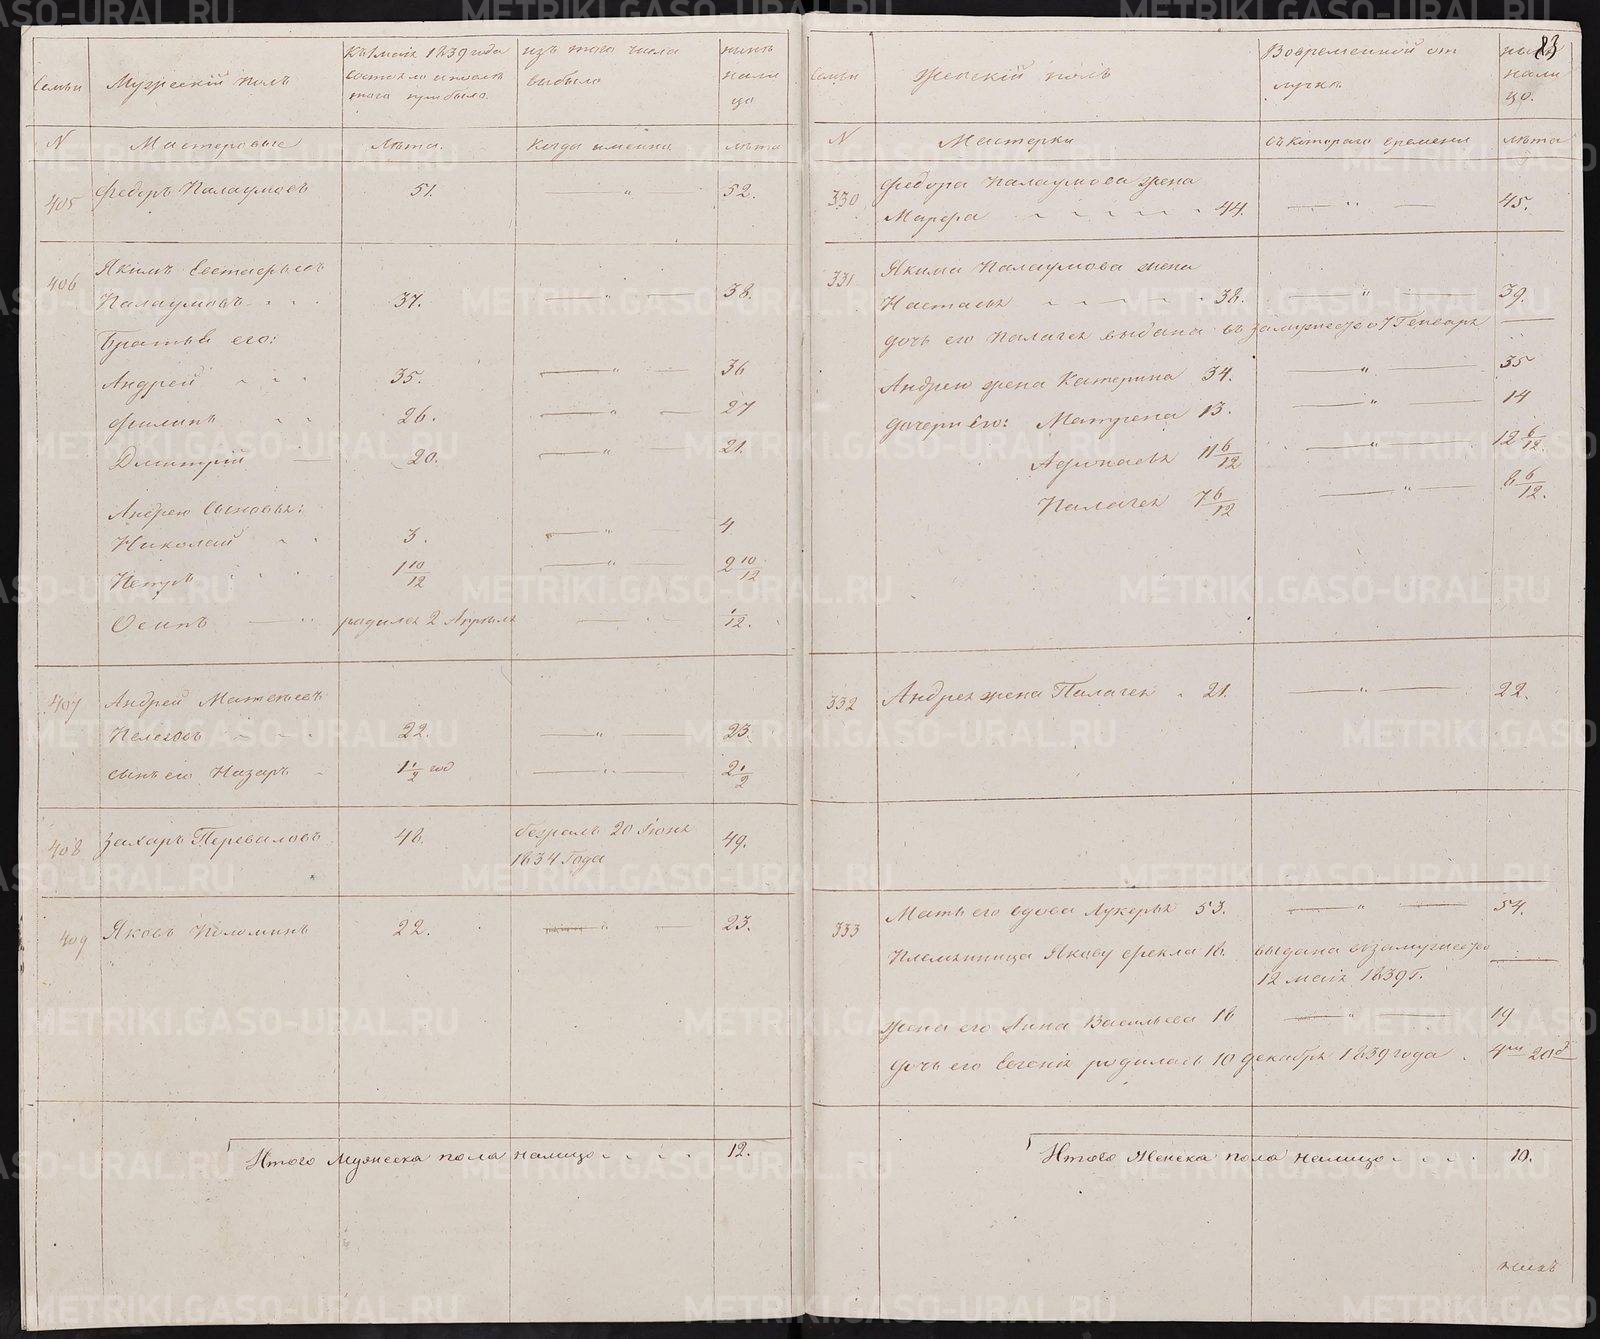 Семьи
Мужескій полъ
Къ 1 маія 1839 года
состояло и послѣ
того прибыло.
изъ того числа
выбыло
нынѣ
нали
цо
N
Мастеровые
Лѣта.
Когда именно
лѣта
405
Федоръ Палаумовъ
51.
52.
406
Якимъ Евстафьевъ
Палаумовъ
37.
38.
Братья его:
Андрей
35.
36
Филипъ
26.
27
Дмитрій
20.
21.
Андрею Сыновья:
Николай
3.
4
Петръ
1 10/12
2 10/12
Осипъ
родился 2 Апрѣля
1/12.
407
Андрей Матвѣевъ
22.
23.
сынъ его Назаръ
1 1/2 год
2 1/2
408
Захаръ Переваловъ
48.
бежалъ 20 Іюня
1834 Года
49.
409
Яковъ Поломинъ
22.
23.
Итого Мужеска пола налицо
12.
83
Семьи
Женскій полъ
Вовременной от
лучкѣ
нынѣ
нали
цо.
N
Мастерки
съ котораго времени
лѣта
330
Федора Палаумова жена
Марфа 44.
45.
331
Якима Палаумова жена
Настасья 38.
39.
дочь его Палагея выдана въ замужество 7 Генваря
Андрею жена Катерина 34.
35
дочери Его: Матрена 13.
14
Афонасья 11 6/12
12 6/12.
Палагея 7 6/12
8 6/12.
332
Андрея жена Палагея 21.
22.
333
Мать его вдова Лукерья 53.
54.
Племянница Якову Фекла 18.
выдана взамужество
12 маія 1839 г.
жена его Анна Васильева 18
19
дочь его Евгенія родилась 10 декабря 1839 года
4 м 20 д
Итого Женска пола налицо
10.